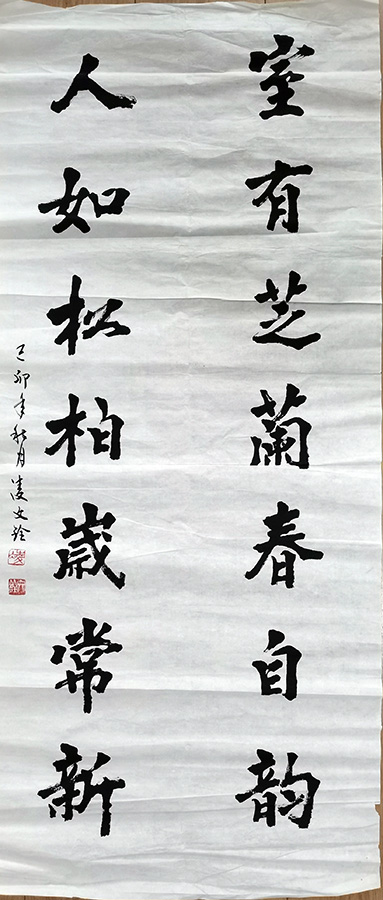 室有芝蘭春自韵
人如松柏歲常新
己卯年秋月凌文铨